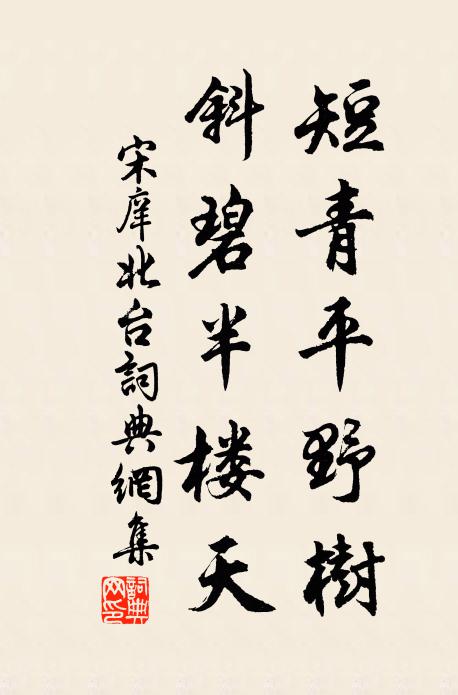 短青平野樹
斜碧半楼天
宋庠北台詞典網集
詞典网印